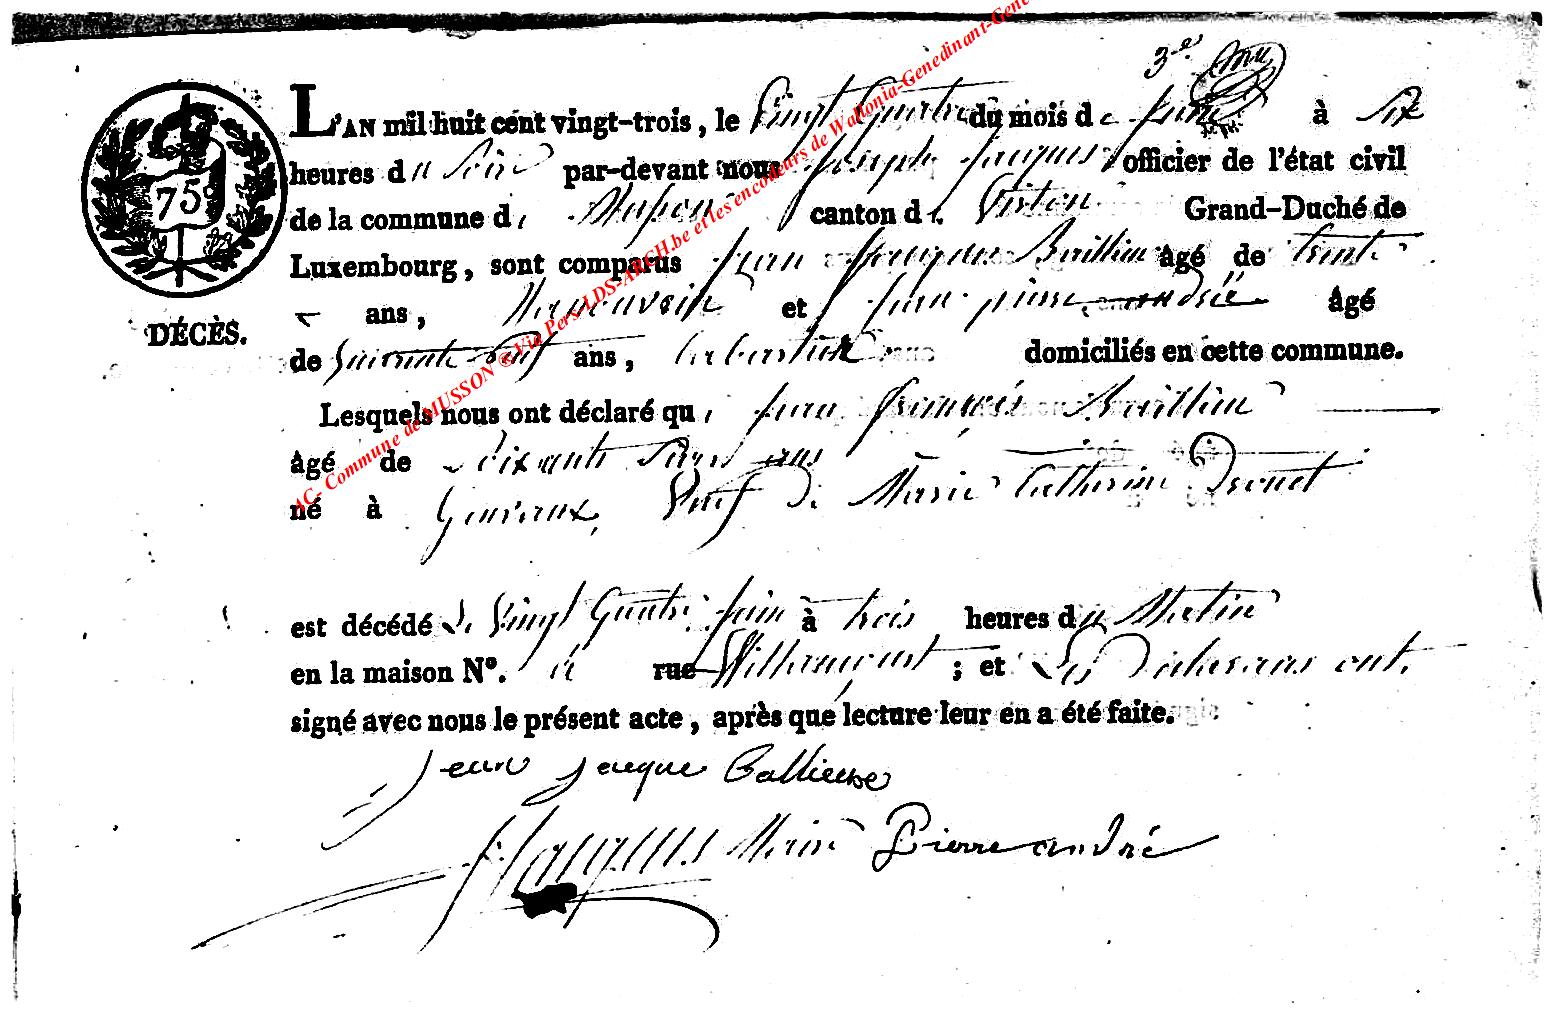 3e.
L'AN mil huit cent vingt-trois, le Vingt Quatre du mois de juin à six
75c
heures du Soir par-devant nous Joseph Jacques officier de l'état civil
de la commune de Musson canton de Virton Grand-Duché de
Luxembourg, sont comparus jean jacques Baillieu âgé de trente
ans, Manouvrier et jean pierre andré âgé
DÉCÈS.
de Soixante Neuf ans, domiciliés en cette commune.
Lesquels nous ont déclaré que jean françois Baillieu
âgé de Soixante ans
né à Gouraux, Veuf de Marie Catherine Drouet
est décédé le Vingt Quatre juin à trois heures du Matin
en la maison N°. à rue Willancourt ; et Les Déclarans ont
signé avec nous le présent acte, après que lecture leur en a été faite.
jean jacque Ballieuxe
J Jacques Maire Pierre andré
AC- Commune de MUSSON ® Via Pers-LDS-ARCH.be et les encodeurs de Wallonia-Genedinant-Gene